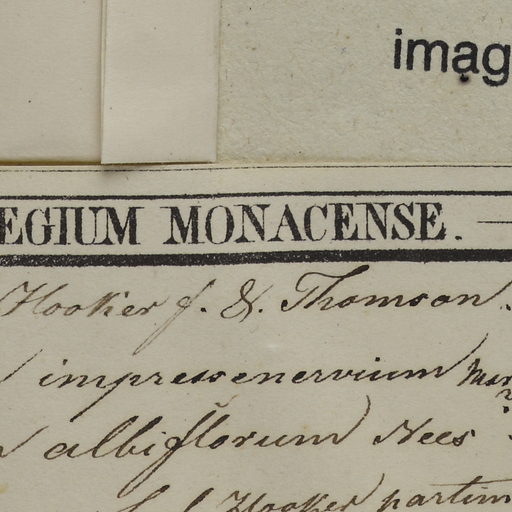 imag
EGIUM MONACENSE.
Hooker f. & Thomson.
impressenervium Mar
albiflorum Nees ?
Hooker partim